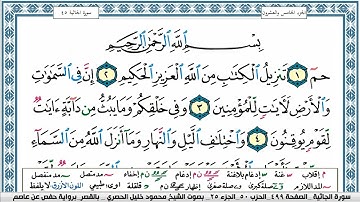 الجزء الخامس والعشرون
سورة الجاثية ٤٥
بِسْمِ اللَّهِ الرَّحْمَٰنِ الرَّحِيمِ
حمٓ ١ تَنزِيلُ الْكِتَابِ مِنَ اللَّهِ الْعَزِيزِ الْحَكِيمِ ٢ إِنَّ فِي السَّمَاوَاتِ
وَالْأَرْضِ لَآيَاتٍ لِّلْمُؤْمِنِينَ ٣ وَفِي خَلْقِكُمْ وَمَا يَبُثُّ مِن دَابَّةٍ آيَاتٌ
لِّقَوْمٍ يُوقِنُونَ ٤ وَاخْتِلَافِ اللَّيْلِ وَالنَّهَارِ وَمَا أَنزَلَ اللَّهُ مِنَ السَّمَاءِ
سورة الجاثية ٤٥ الصفحة ٤٩٩ الحزب ٥٠ الجزء ٢٥ بصوت الشيخ محمود خليل الحصري . بالقصر برواية حفص عن عاصم